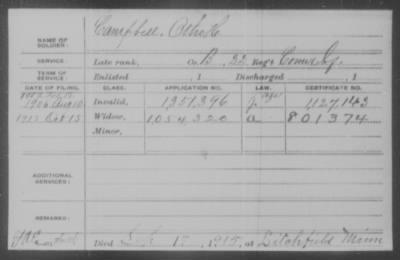 NAME OF SOLDIER: Campbell,
SERVICE: Late rank, Co. B, 22 Reg't Conn. Inf.
TERM OF SERVICE: Enlisted , 1 Discharged , 1
DATE OF FILING. CLASS. APPLICATION NO. CERTIFICATE NO.
1906 Aug 10 Invalid, 1351396 1127143
1915 Oct 15 Widow, 1054320 a 801374
Minor,
ADDITIONAL SERVICES:
REMARKS:
Died 15, 1915, at Litchfield Minn